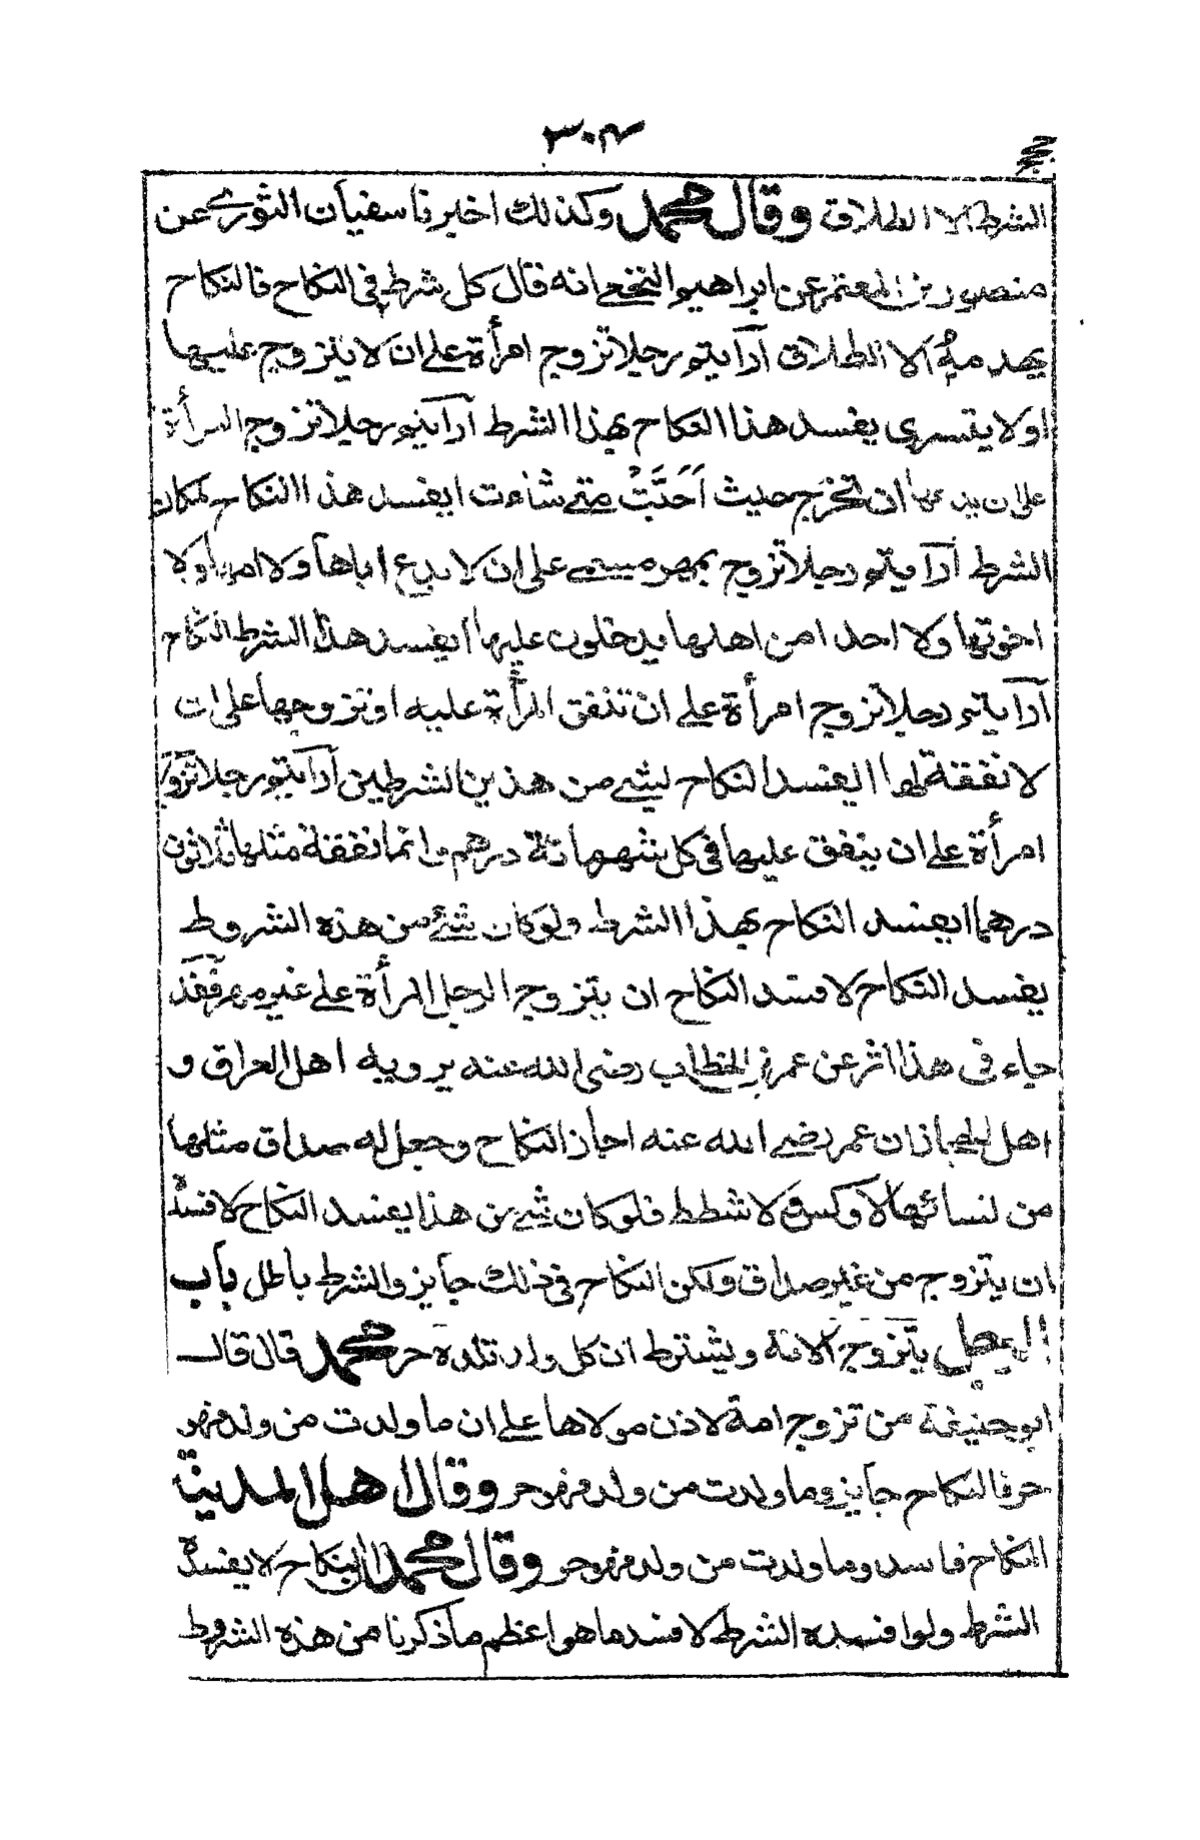 ٣٠٤
الشرط الا الطلاق وقال محمد وكذلك اخبرنا سفيان الثوري عن
منصور بن المعتمر عن ابراهيم النخعي انه قال كل شرط في النكاح فالنكاح
يهدمه الا الطلاق آرايتم رجلا تزوج امرأة على ان لا يتزوج عليها
او لا يتسرى يفسد هذا النكاح بهذا الشرط آرايتم رجلا تزوج امرأة
على ان بيدها ان تخرج حيث اَحَبَّتْ متى شاءت ايفسد هذا النكاح لمكان
الشرط آرايتم رجلا تزوج بمهر مسمى على ان لا يدع اباها ولا امها ولا
اخوتها ولا احدا من اهلها يدخلون عليها ايفسد هذا الشرط النكاح
آرايتم رجلا تزوج امرأة على ان تنفق المرأة عليه او تزوجها على ان
لا نفقة لها ايفسد النكاح لشئ من هذين الشرطين آرايتم رجلا تزوج
امرأة على ان ينفق عليها في كل شهر مائة درهم وانما نفقة مثلها ثلاثون
درهما ايفسد النكاح بهذا الشرط ولو كان شئ من هذه الشروط
يفسد النكاح لا فسد النكاح ان يتزوج الرجل المرأة على غير مهر فقد
جاء في هذا اثر عن عمر بن الخطاب رضى الله عنه يرويه اهل العراق و
اهل الحجاز ان عمر رضي الله عنه اجاز النكاح وجعل له صداق مثلها
من نسائها لا وكس ولا شطط فلو كان شئ من هذا يفسد النكاح لا فسده
ان يتزوج من غير صداق ولكن النكاح في ذلك جايز والشرط باطل باب
الرجل يتزوج الامة ويشترط ان كل ولد تلده حر محمد قال قال
ابو حنيفة من تزوج امة لاذن مولاها على ان ما ولدت من ولد فهو
حر فالنكاح جايز وما ولدت من ولد فهو حر وقال اهل المدينة
النكاح فاسد وما ولدت من ولد فهو حر وقال محمد النكاح لا يفسده
الشرط ولو افسده الشرط لا فسد ما هو اعظم ما ذكرنا من هذه الشروط